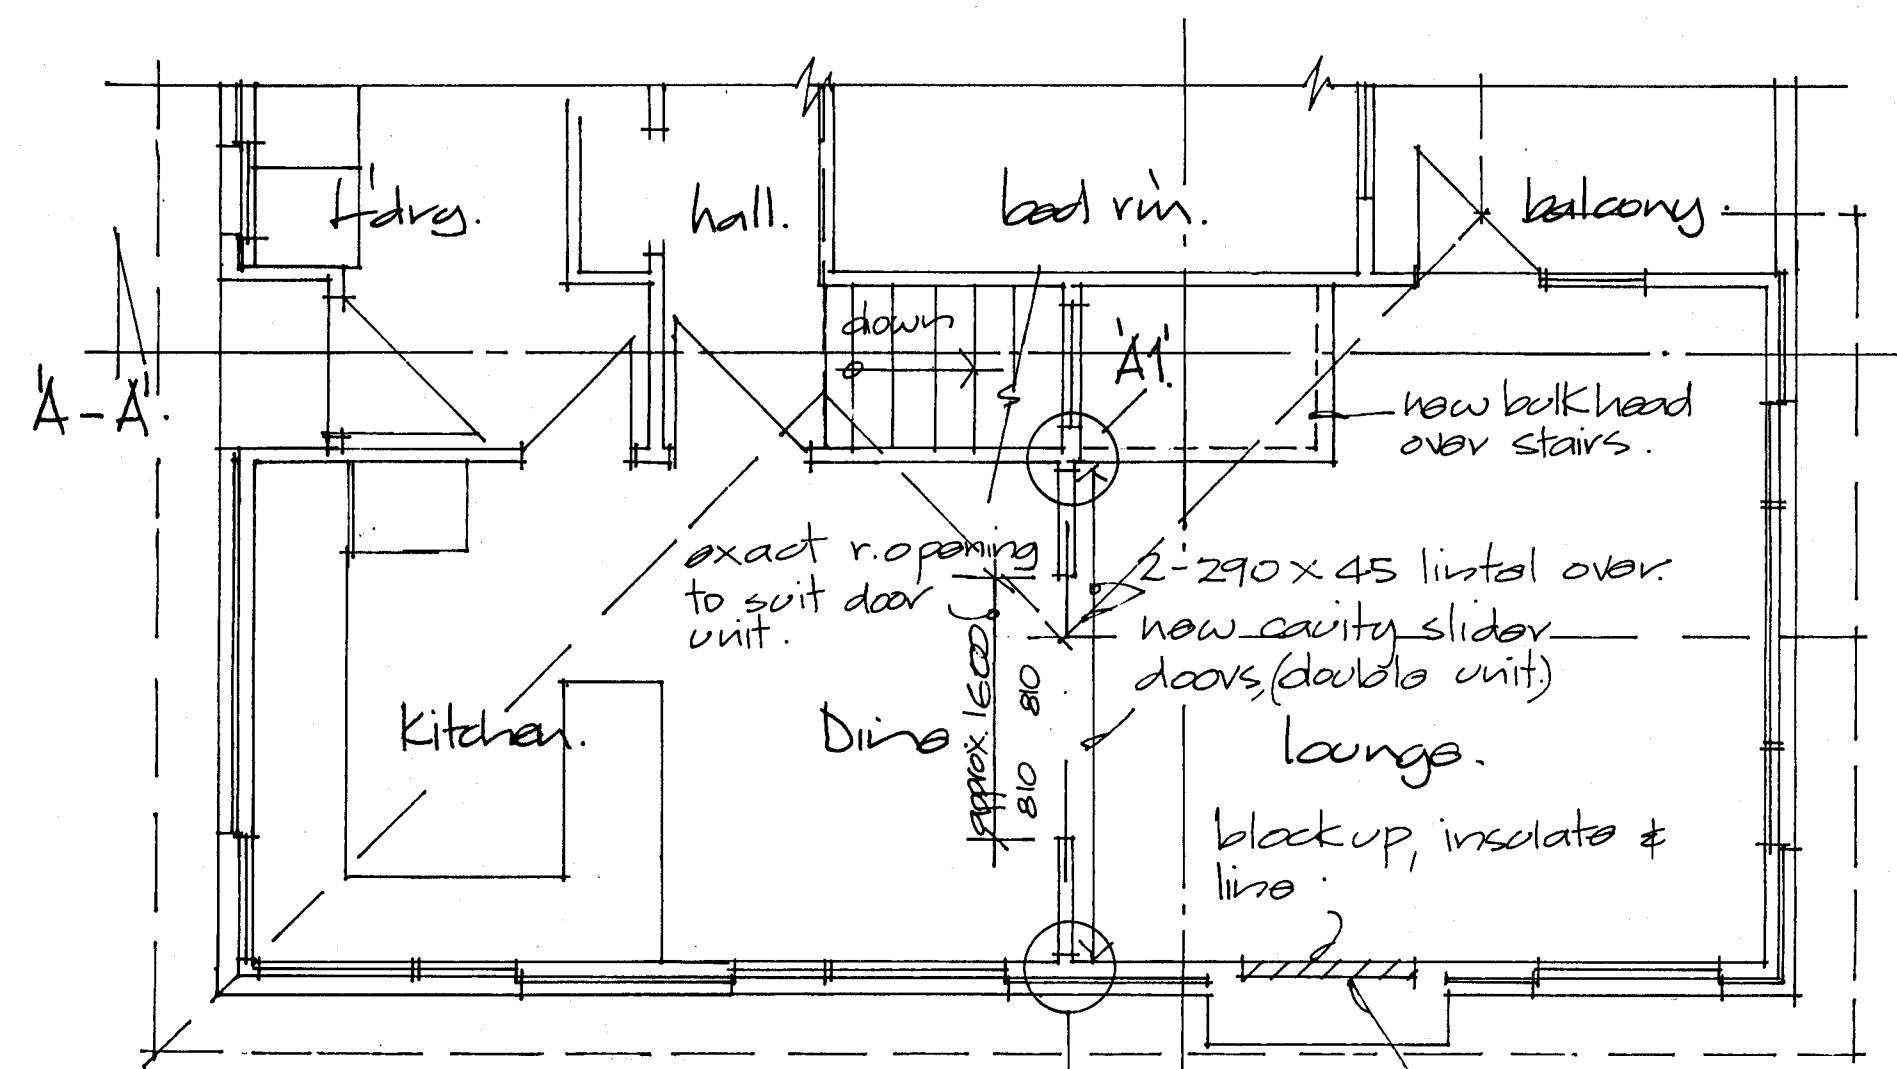 L'drg.
hall.
bed rm.
balcony.
down
'A1'.
'A - A'.
new bulkhead
over stairs.
exact r.opening
to suit door
unit.
2-290 x 45 lintel over.
new cavity slider
doors, (double unit)
approx. 1600
810 810
Kitchen.
Dine
lounge.
block up, insulate &
line.